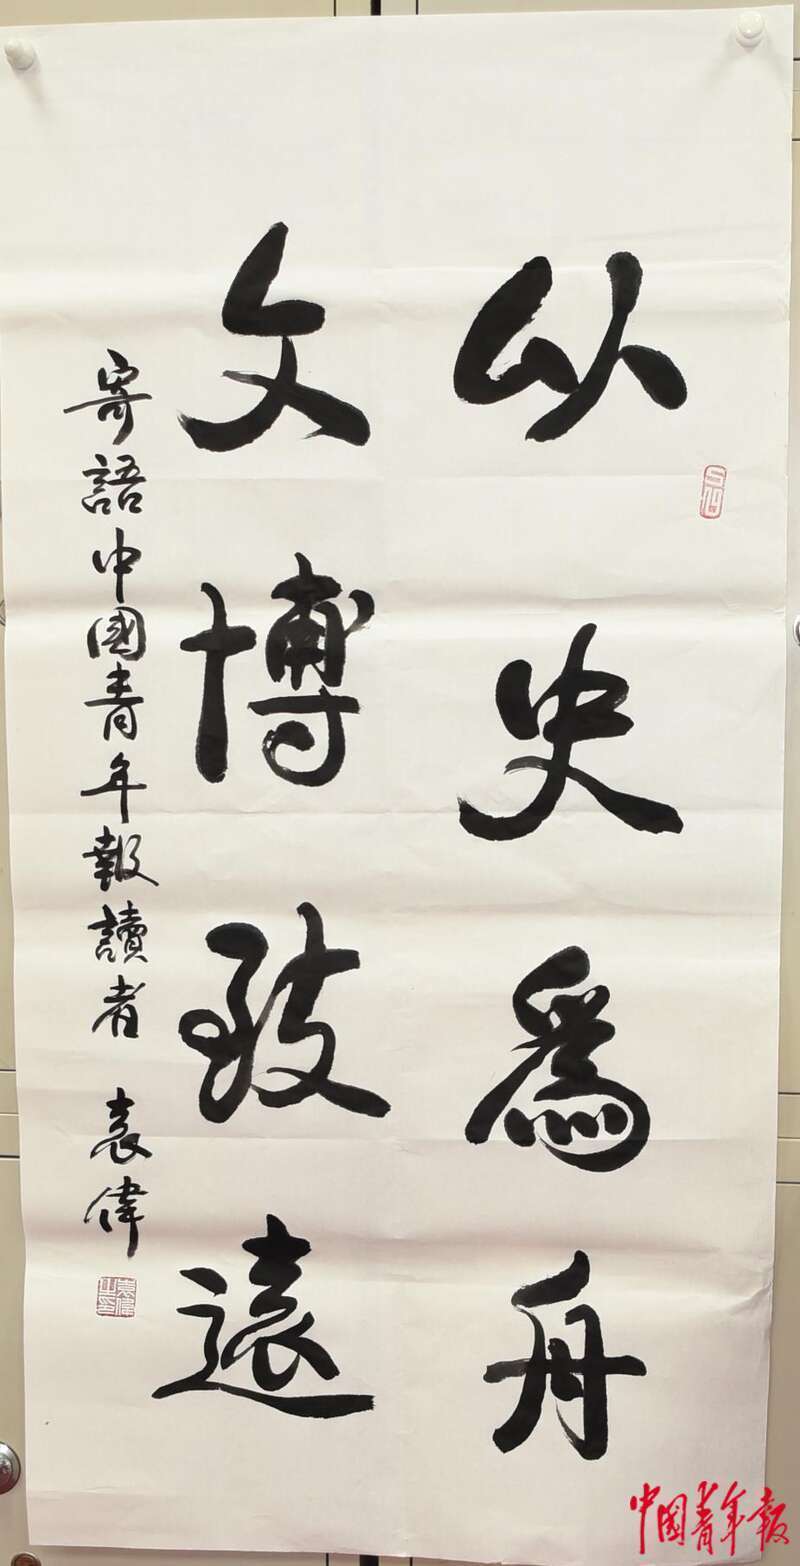 以史為舟
文博致遠
寄語中國青年報讀者 袁偉
袁偉之印
中国青年报